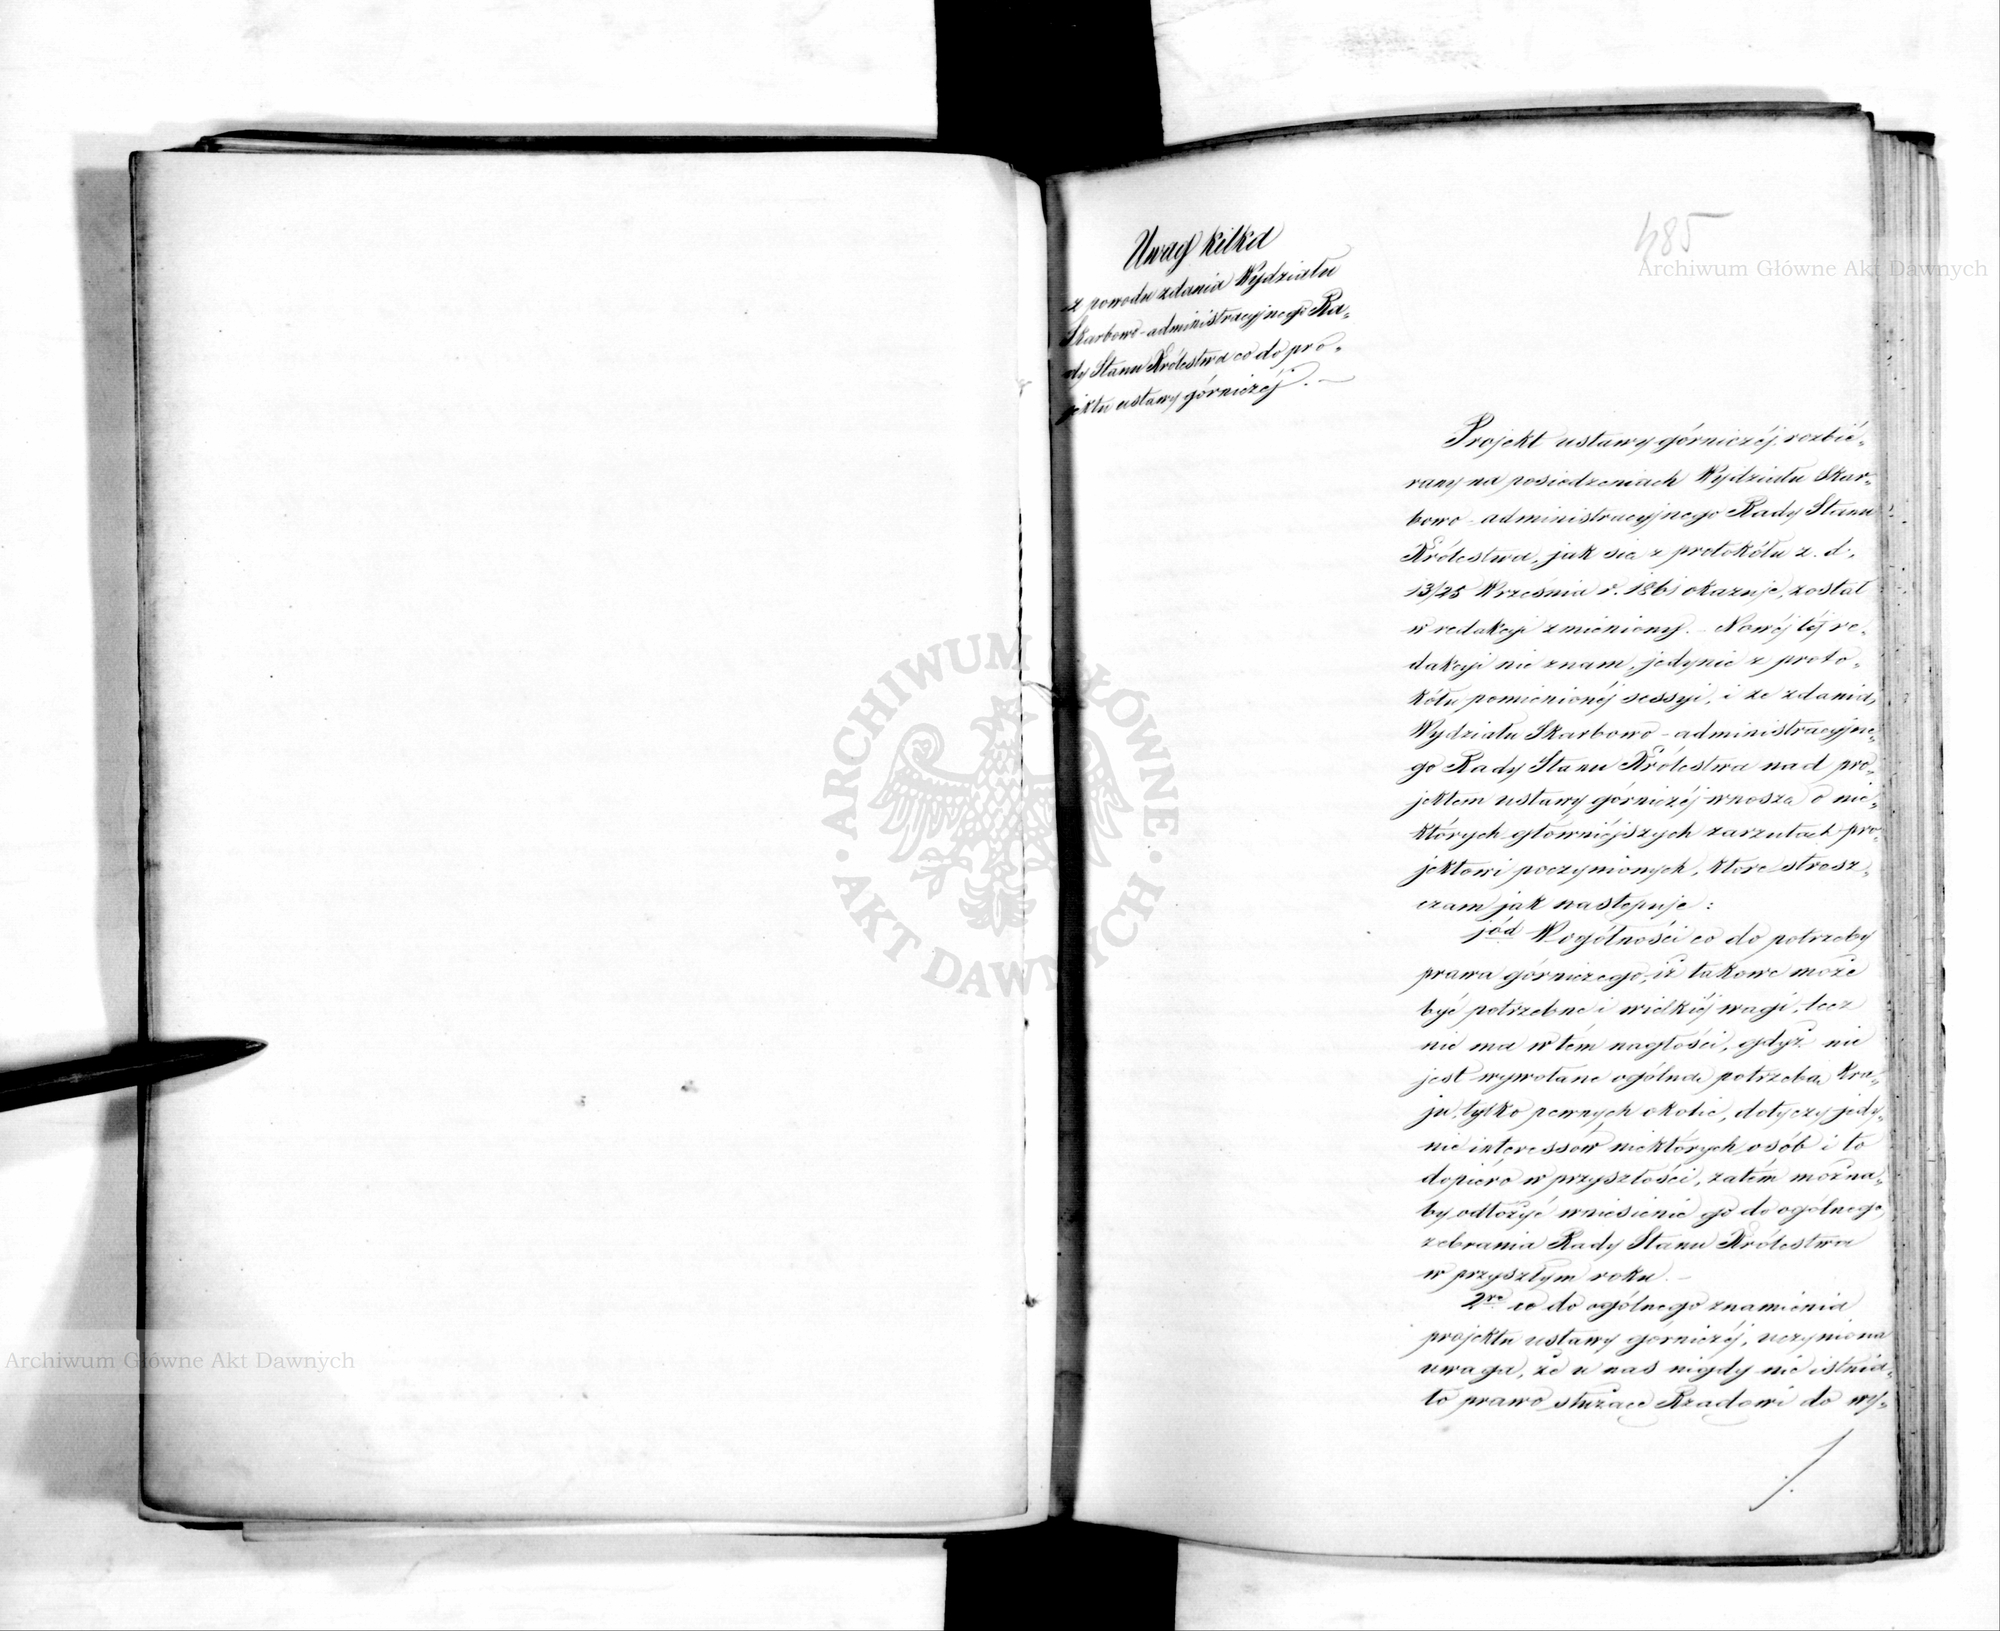 485
Uwag kilka
z powodu zdania Wydziału
Skarbowo-administracyjnego Ra„
dy Stanu Królestwa co do pro„
jektu ustawy górniczéj. —
Projekt ustawy górniczéj, rozbié„
rany na posiedzeniach Wydziału Skar„
bowo-administracyjnego Rady Stanu
Królestwa, jak się z protokółu z d.
13/25 Września r. 1861 okazuje, został
w redakcyi zmieniony. – Nowéj téj re„
dakcyi nie znam, jedynie z proto„
kółu pomienionéj sessyi, i ze zdania
Wydziału Skarbowo-administracyjne„
go Rady Stanu Królestwa nad pro„
jektem ustawy górniczéj wnoszę o nie„
których główniejszych zarzutach pro„
jektowi poczynionych, które stresz„
czam jak następuje:
jód W ogólności co do potrzeby
prawa górniczego, iż takowe może
być potrzebne i wielkiéj wagi, lecz
nie ma w tém nagłości, gdyż nie
jest wywołane ogólną potrzebą kra„
ju, tylko pewnych okolic, dotyczy jedy„
nie interessów niektórych osób i to
dopiéro w przyszłości, zatém można„
by odłożyć wniesienie go do ogólnego
zebrania Rady Stanu Królestwa
w przyszłym roku. –
2re co do ogólnego znamienia
projektu ustawy górniczéj, uczyniona
uwaga, że u nas nigdy nie istnia„
ło prawo służące Rządowi do wy„
ARCHIWUM GŁÓWNE · AKT DAWNYCH ·
Archiwum Główne Akt Dawnych
Archiwum Główne Akt Dawnych